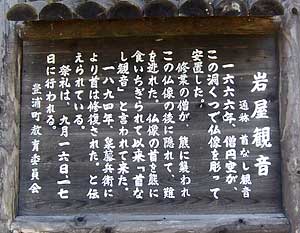 岩屋観音
通称 首なし観音
一六六六年、僧円空が、
この洞くつで仏像を彫って
安置した。
修業の僧が、熊に襲われ
この仏像の後に隠れて、難
を逃れた。仏像の首を熊に
食いちぎられて以来「首な
し観音」と言われて来た。
一八九四年、泉藤兵衛に
より首は修復された、と伝
えられている。
祭礼は、九月一六日、一七
日に行われる。
豊浦町教育委員会